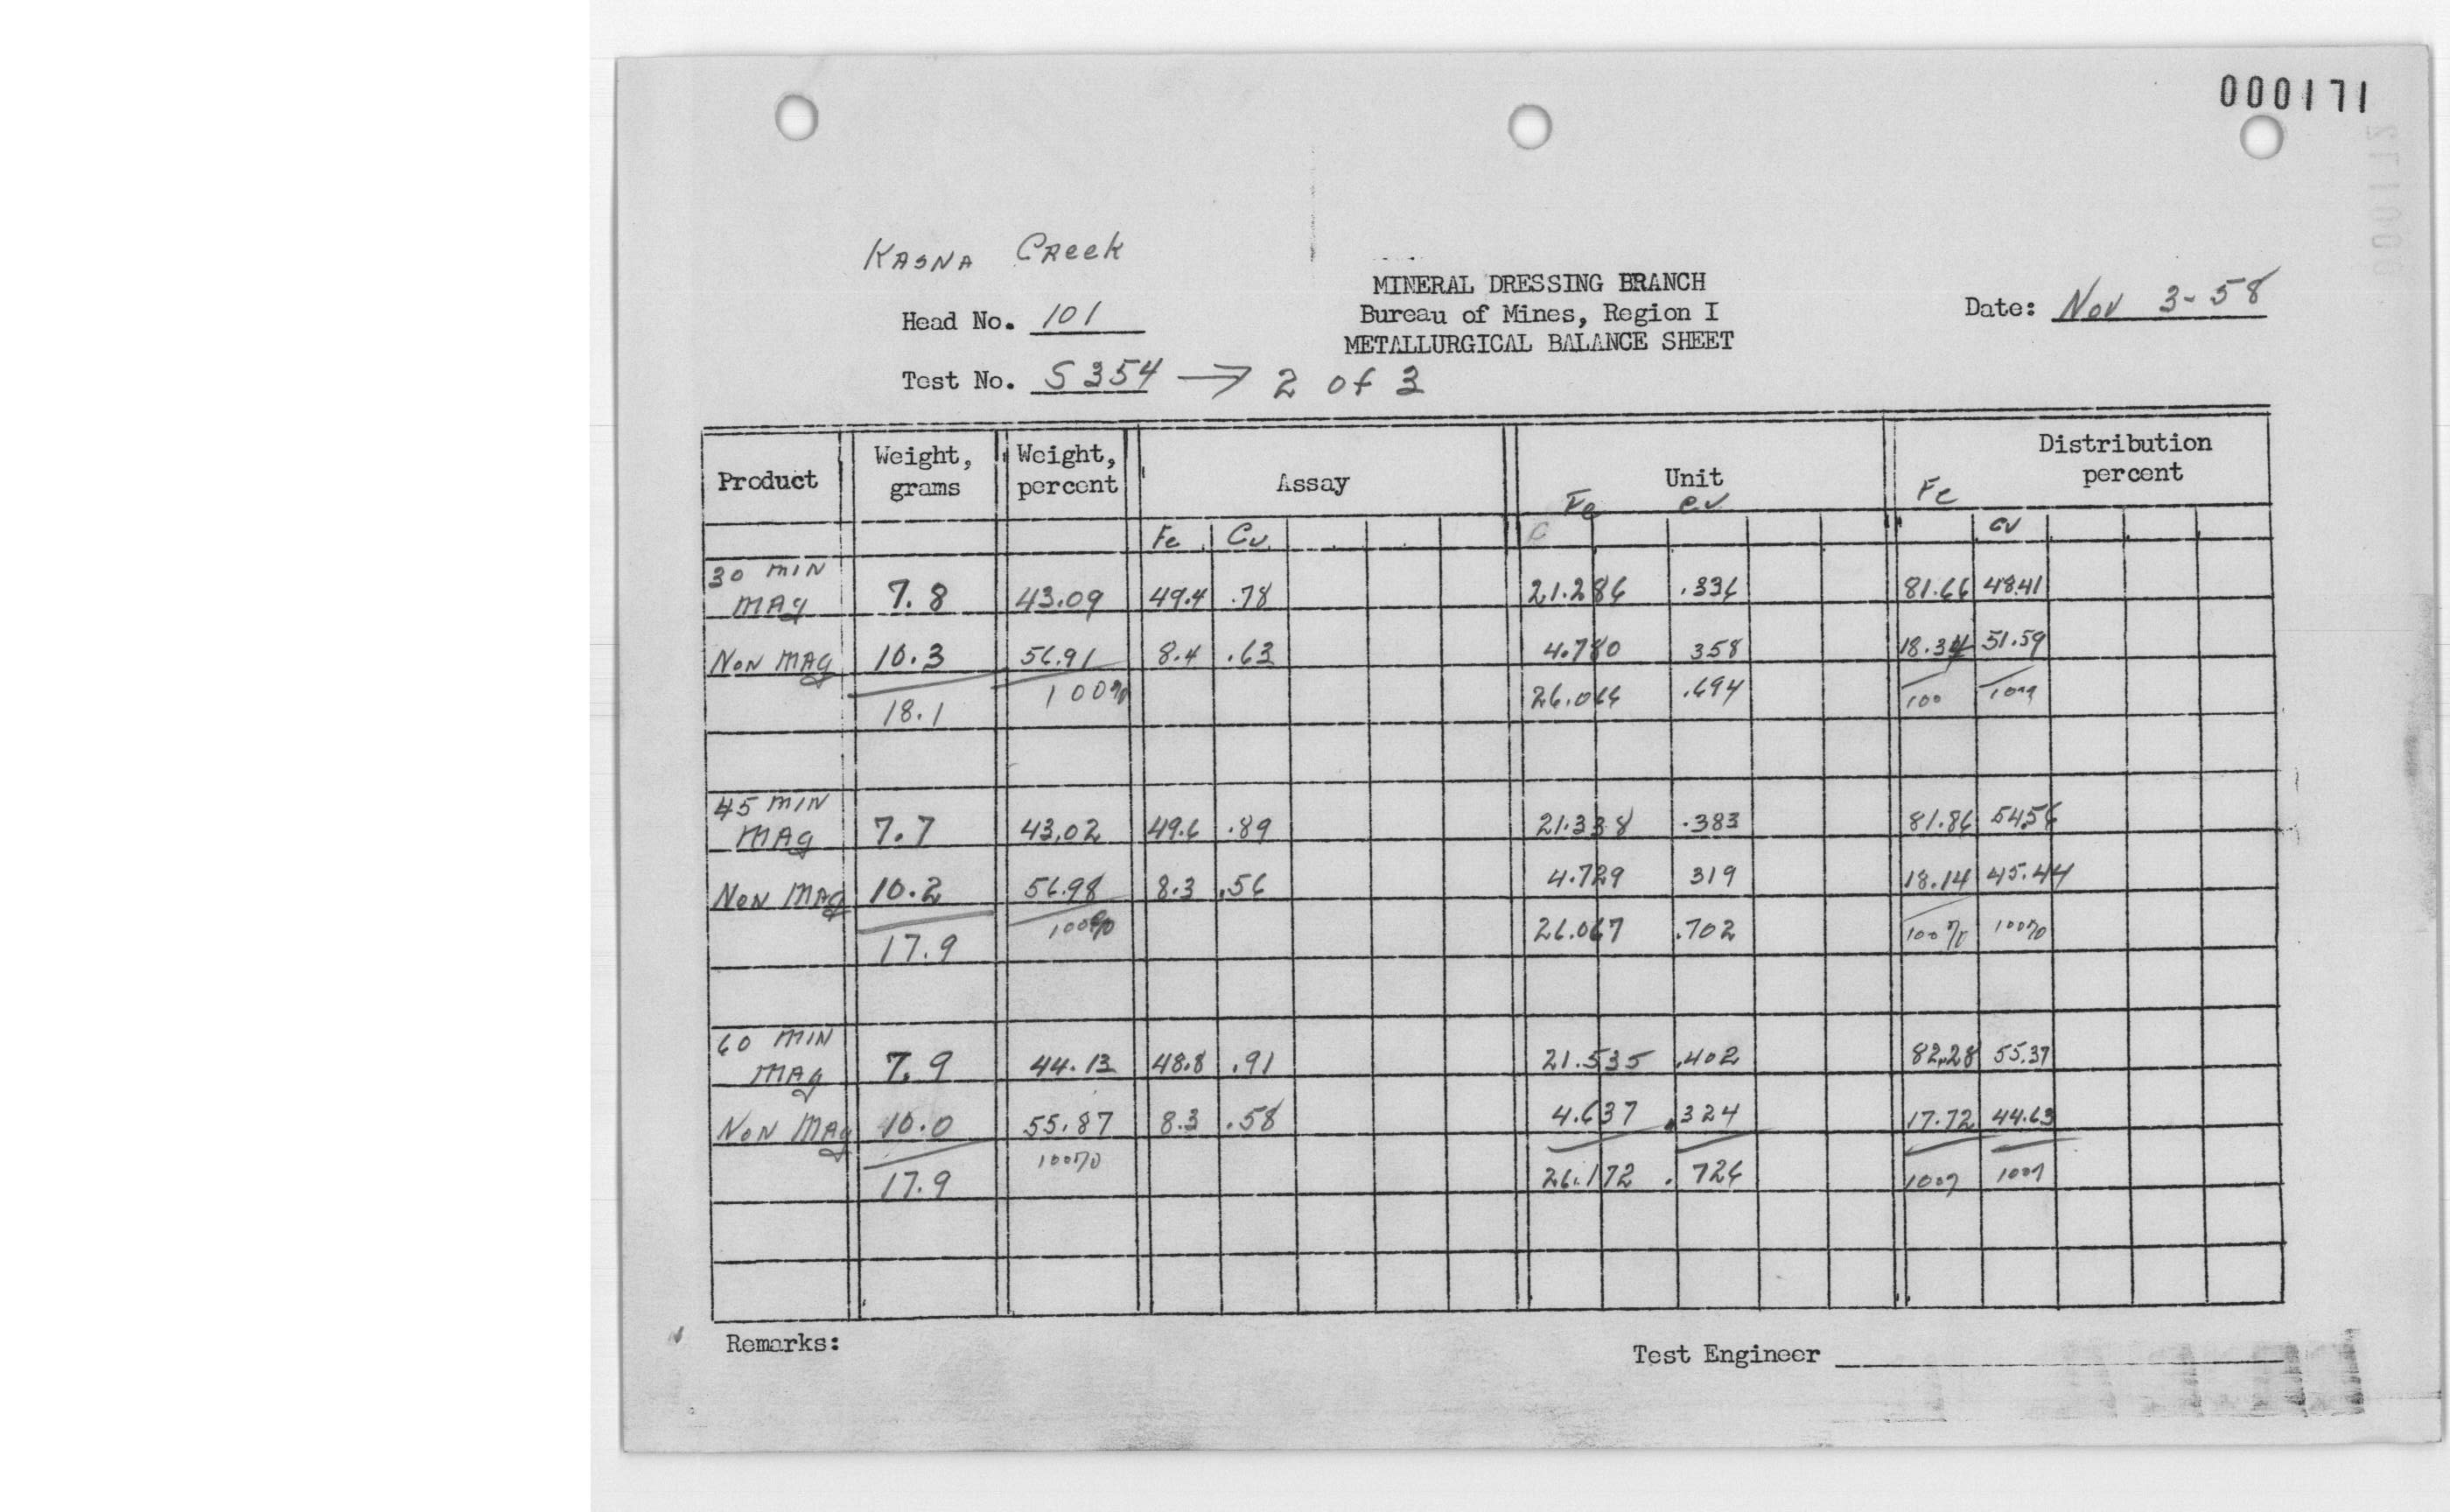 000171
KASNA CREEK
MINERAL DRESSING BRANCH
Bureau of Mines, Region I
METALLURGICAL BALANCE SHEET
Date: Nov 3-58
Head No. 101
Test No. S354 → 2 of 3
Product Weight, grams Weight, percent Assay Unit Distribution percent
Fe Cu Fe Cu Fe Cu
30 MIN
MAg 7.8 43.09 49.4 .78 21.286 .336 81.66 48.41
NON MAg 10.3 56.91 8.4 .63 4.780 358 18.34 51.59
18.1 100% 26.066 .694 100 100%
45 MIN
MAg 7.7 43.02 49.6 .89 21.338 .383 81.86 54.56
NON MAg 10.2 56.98 8.3 .56 4.729 319 18.14 45.44
17.9 100% 26.067 .702 100% 100%
60 MIN
MAg 7.9 44.13 48.8 .91 21.535 .402 82.28 55.37
NON MAg 10.0 55.87 8.3 .58 4.637 .324 17.72 44.63
17.9 100% 26.172 .726 100% 100%
Remarks:
Test Engineer